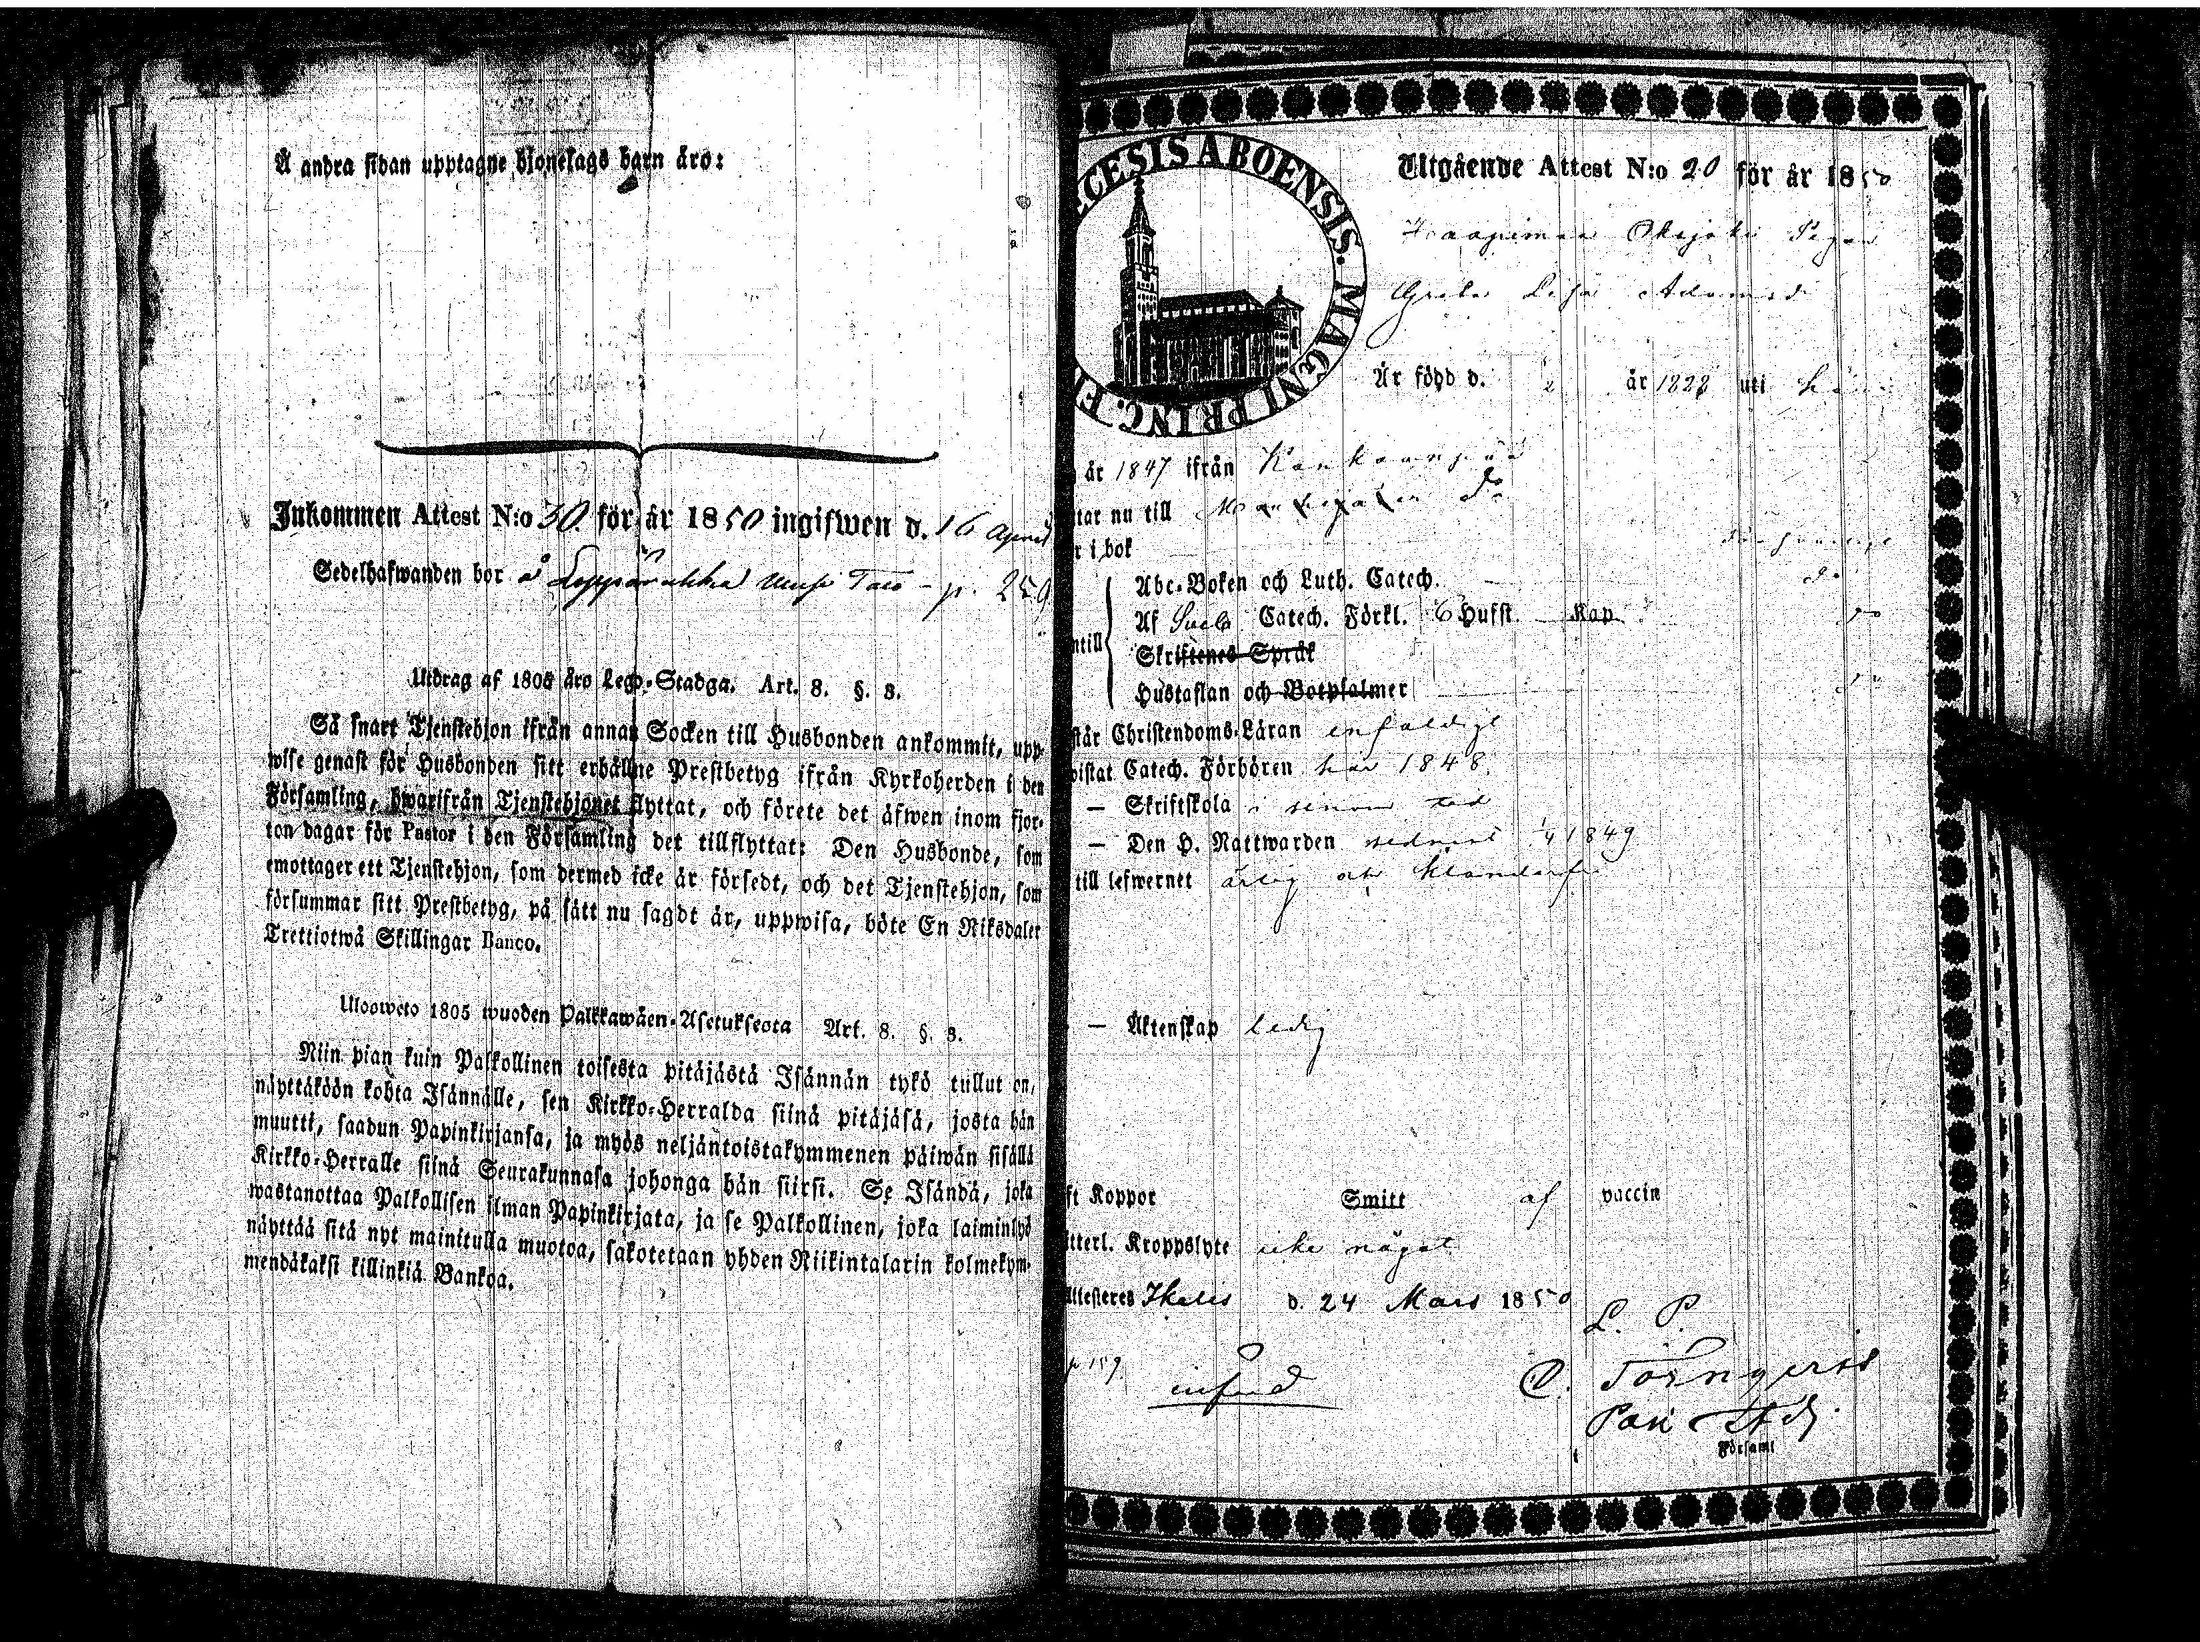 Å andra sidan upptagne hjonelags barn äro:
Inkommen Attest N:o 30 för år 1850 ingifwen d. 16 April
Sedelhafwanden bor å p. 259
Utdrag af 1805 års Lego-Stadga. Art. 8. §. 3.
Så snart Tjenstehjon ifrån annan Socken till Husbonden ankommit, upp-
wise genast för Husbonden sitt erhållne Prestbetyg ifrån Kyrkoherden i den
Församling, hwarifrån Tjenstehjonet flyttat, och förete det äfwen inom fjor-
ton dagar för Pastor i den Församling det tillflyttat: Den Husbonde, som
emottager ett Tjenstehjon, som dermed icke är försedt, och det Tjenstehjon, som
försummar sitt Prestbetyg, på sätt nu sagdt är, uppwisa, böte En Riksdaler
Trettiotwå Skillingar Banco.
Ulosweto 1805 wuoden Palkkawäen-Asetuksesta Art. 8. §. 3.
Niin pian kuin Palkollinen toisesta pitäjästä Isännän tykö tullut on,
näyttäköön kohta Isännälle, sen Kirkko-Herralda siinä pitäjäsä, josta hän
muutti, saadun Papinkirjansa, ja myös neljäntoistakymmenen päiwän sisällä
Kirkko-Herralle siinä Seurakunnasa johonga hän siirsi. Se Isändä, joka
wastanottaa Palkollisen ilman Papinkirjata, ja se Palkollinen, joka laiminlyö
näyttää sitä nyt mainitulla muotoa, sakotetaan yhden Riikintalarin kolmekym-
mendäkaksi killinkiä Bankoa.
CESIS ABOENSIS. MAGNI PRINC. F
Utgående Attest N:o 20 för år 1850
Greta Lisa Adamsd
Är född d. 2 år 1828 uti
år 1847 ifrån Kankaanpää
tar nu till
r i bok
Abc-Boken och Luth. Catech.
Af Sveb Catech. Förkl. 6 Hufst. Kap
ntill
Skriftenes Språk
Hustaflan och Botpsalmer
står Christendoms-Läran enfaldigt
vistat Catech. Förhören här 1848.
— Skriftskola i sinom tid
— Den H. Nattwarden sednast 1/4 1849
till lefwernet ärlig
— Äktenskap ledig
ft Koppor Smitt af vaccin
tterl. Kroppslyte icke något
Attesteres Ikalis d. 24 Mars 1850
p 159 L. P.
C. Törngren
Församl